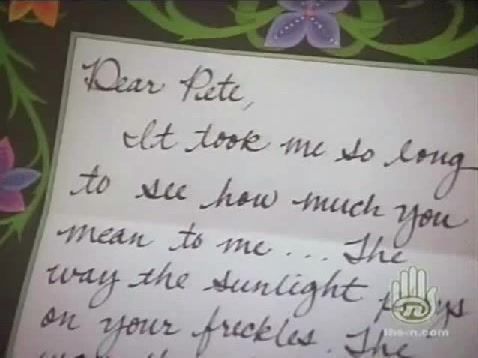 Dear Pete,
It took me so long
to see how much you
mean to me... The
way the sunlight plays
on your freckles. The
the-n.com